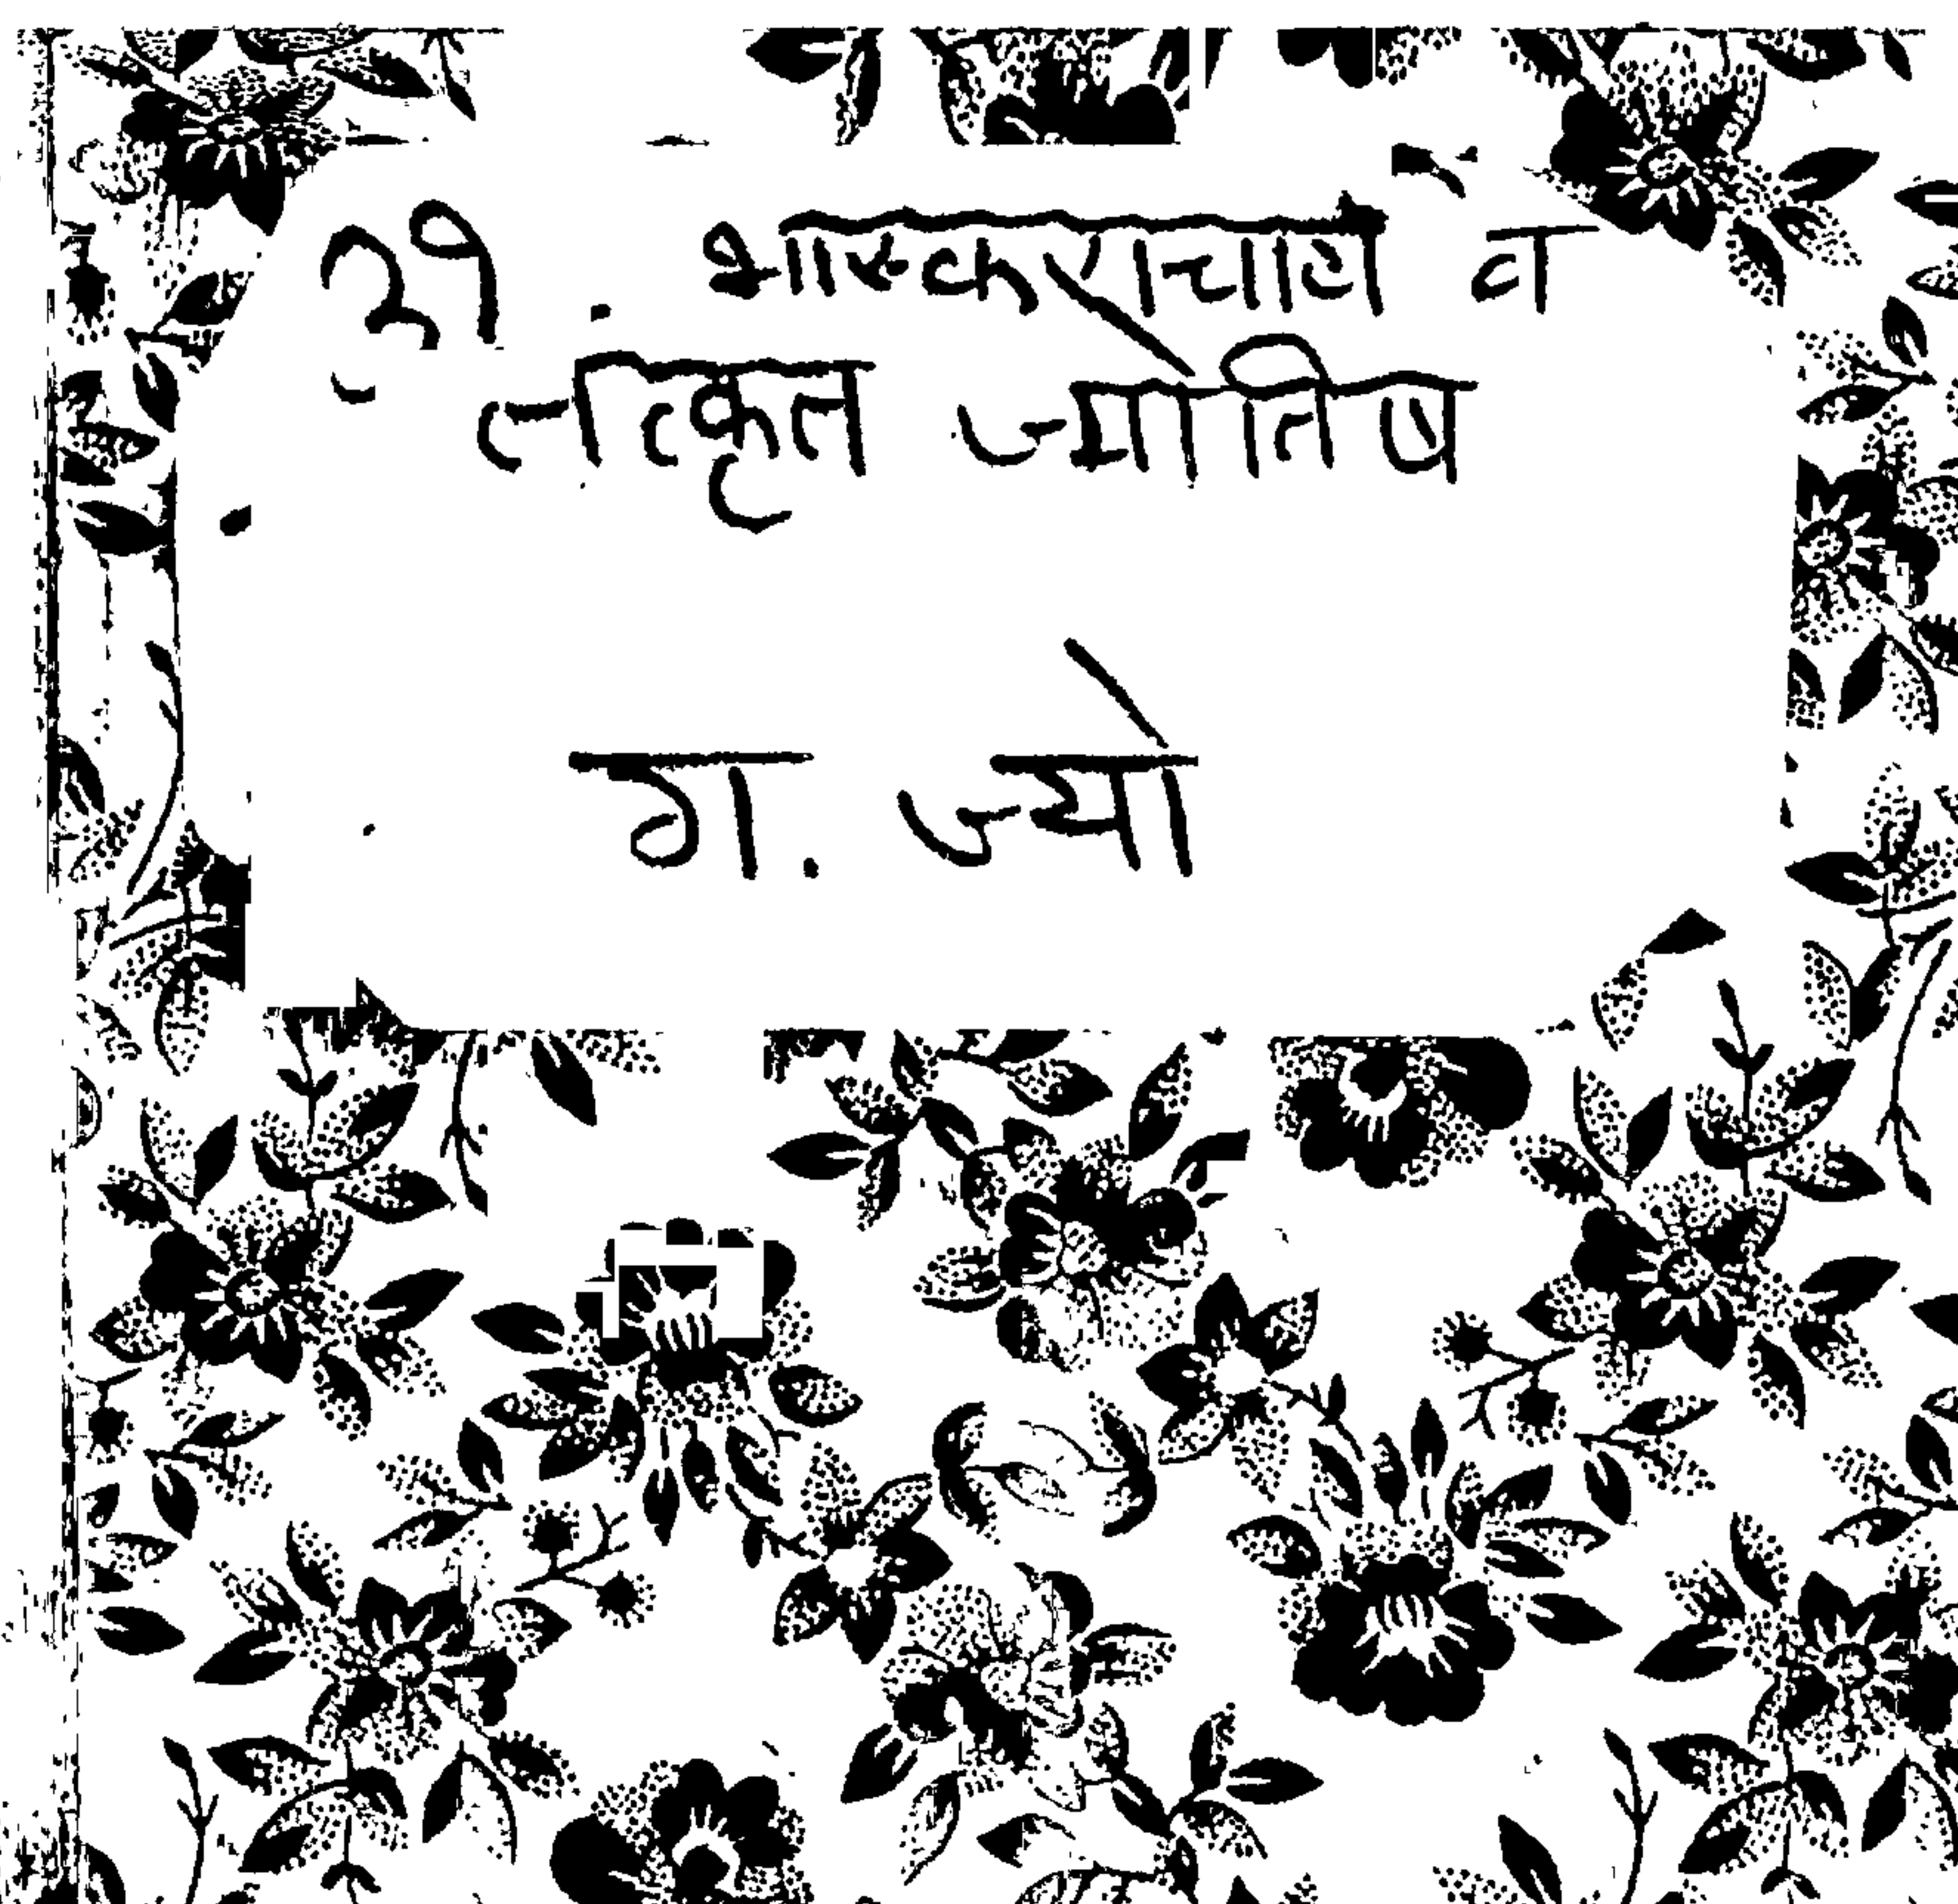 श्री . भास्कराचार्य व
तत्कृत ज्योतिष
ग. ज्यो